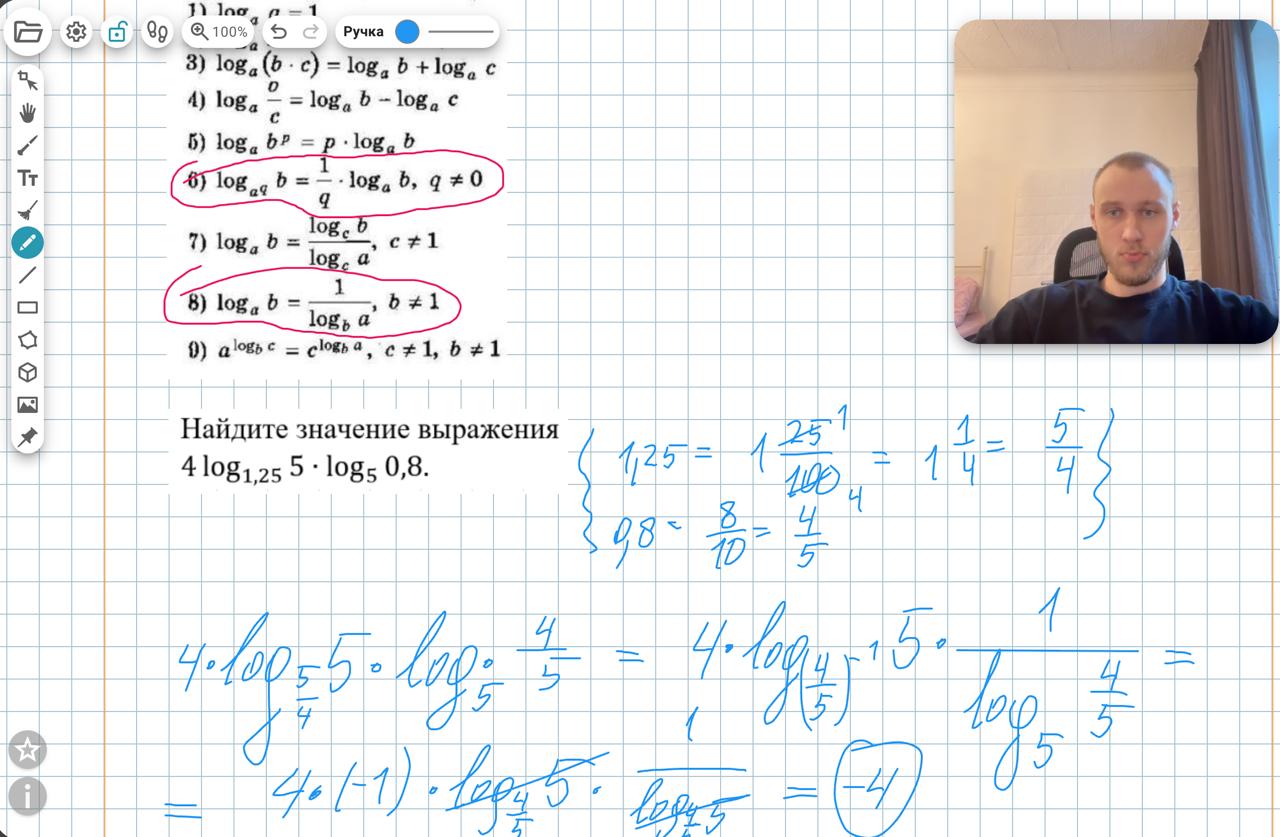 1) logₐ a = 1
100%
Ручка
3) logₐ (b · c) = logₐ b + logₐ c
4) logₐ b/c = logₐ b − logₐ c
5) logₐ bᵖ = p · logₐ b
6) log_{a^q} b = 1/q · logₐ b, q ≠ 0
7) logₐ b = log_c b / log_c a, c ≠ 1
8) logₐ b = 1 / log_b a, b ≠ 1
9) a^{log_b c} = c^{log_b a}, c ≠ 1, b ≠ 1
Найдите значение выражения
4 log_{1,25} 5 · log_5 0,8.
1,25 = 1 25/100 = 1 1/4 = 5/4
1
4
0,8 = 8/10 = 4/5
4 · log_{5/4} 5 · log_5 4/5 = 4 · log_{(4/5)^{-1}} 5 · 1 / log_5 4/5 =
= 4 · (−1) · log_{4/5} 5 · 1 / log_{4/5} 5 = −4
Tт
i